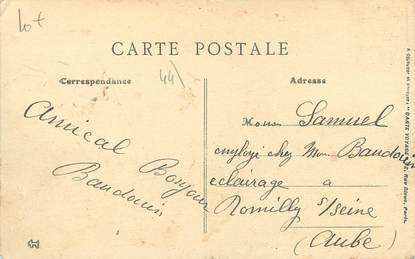 lot
CARTE POSTALE
Correspondance
44
Adresse
Amical Bonjour
Baudouin
Samuel
chez Baudouin
eclairage a
Romilly s/Seine
(Aube)
"CARTE Rue Paris.